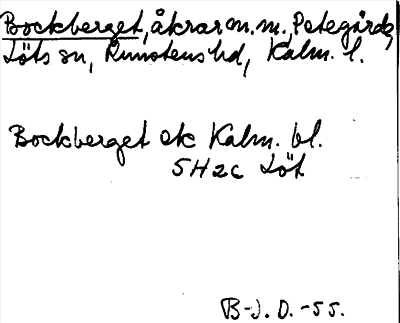 Bockberget, åkrar m.m., Petegärde,
Löts sn, Runstens hd, Kalm. l.
Bockberget ek Kalm. bl.
5H2c Löt
B-J. O. -55.